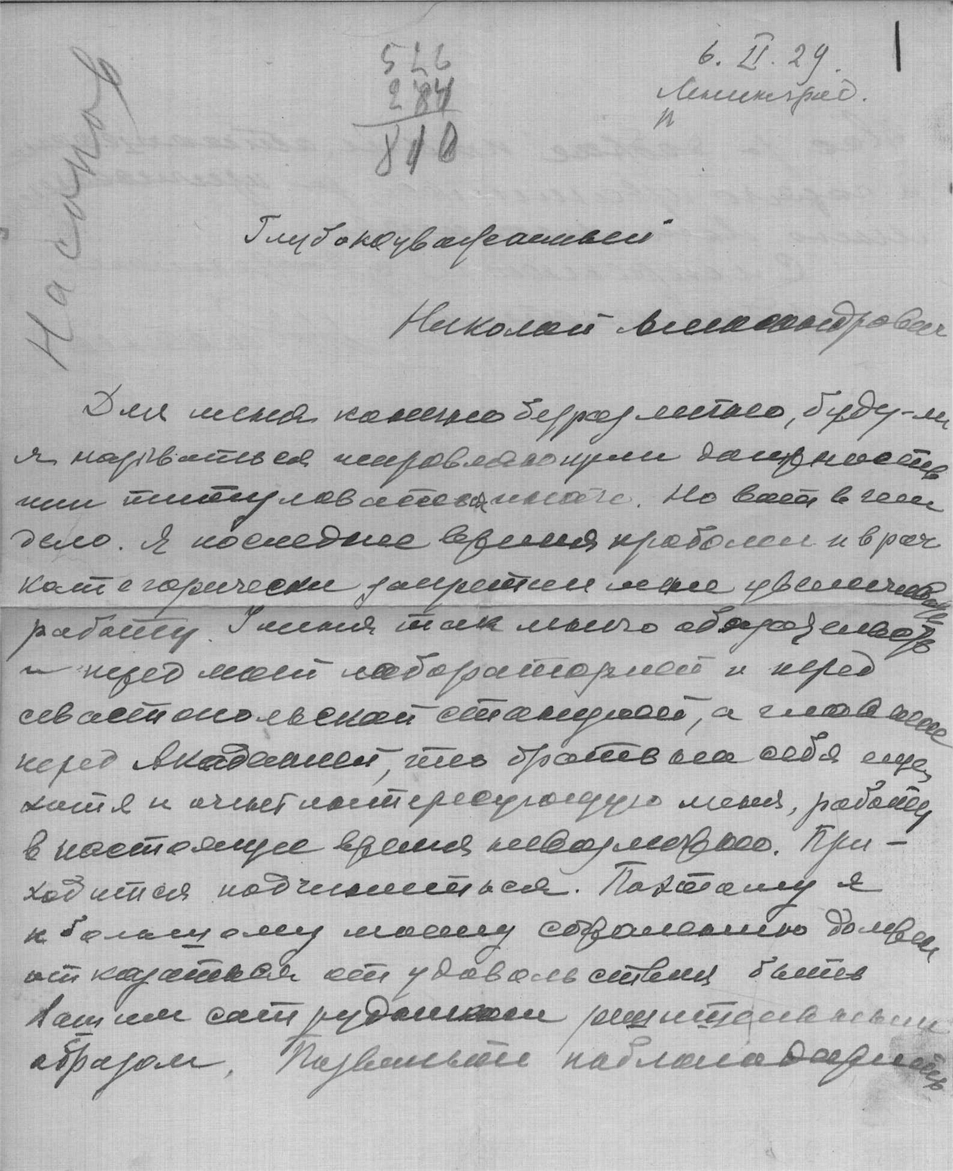 Насонов
572
284
810
6. II. 29.
Ленинград.
1
Глубокоуважаемый
Николай Александрович
Для меня конечно безразлично, буду-ли
я называться исправляющим должность
или титуловаться иначе. Но вот в чем
дело. Я последнее время проболел и врач
категорически запретил мне увеличивать
работу. У меня так много обязательств
и перед моей лабораторией и перед
севастопольской станцией, а главное
перед Академией, что брать на себя еще,
хотя и очень интересующую меня, работу
в настоящее время невозможно. При-
ходится подчиниться. Поэтому я
к большому моему сожалению должен
отказаться от удовольствия быть
Вашим сотрудником решительным
образом. Позвольте поблагодарить